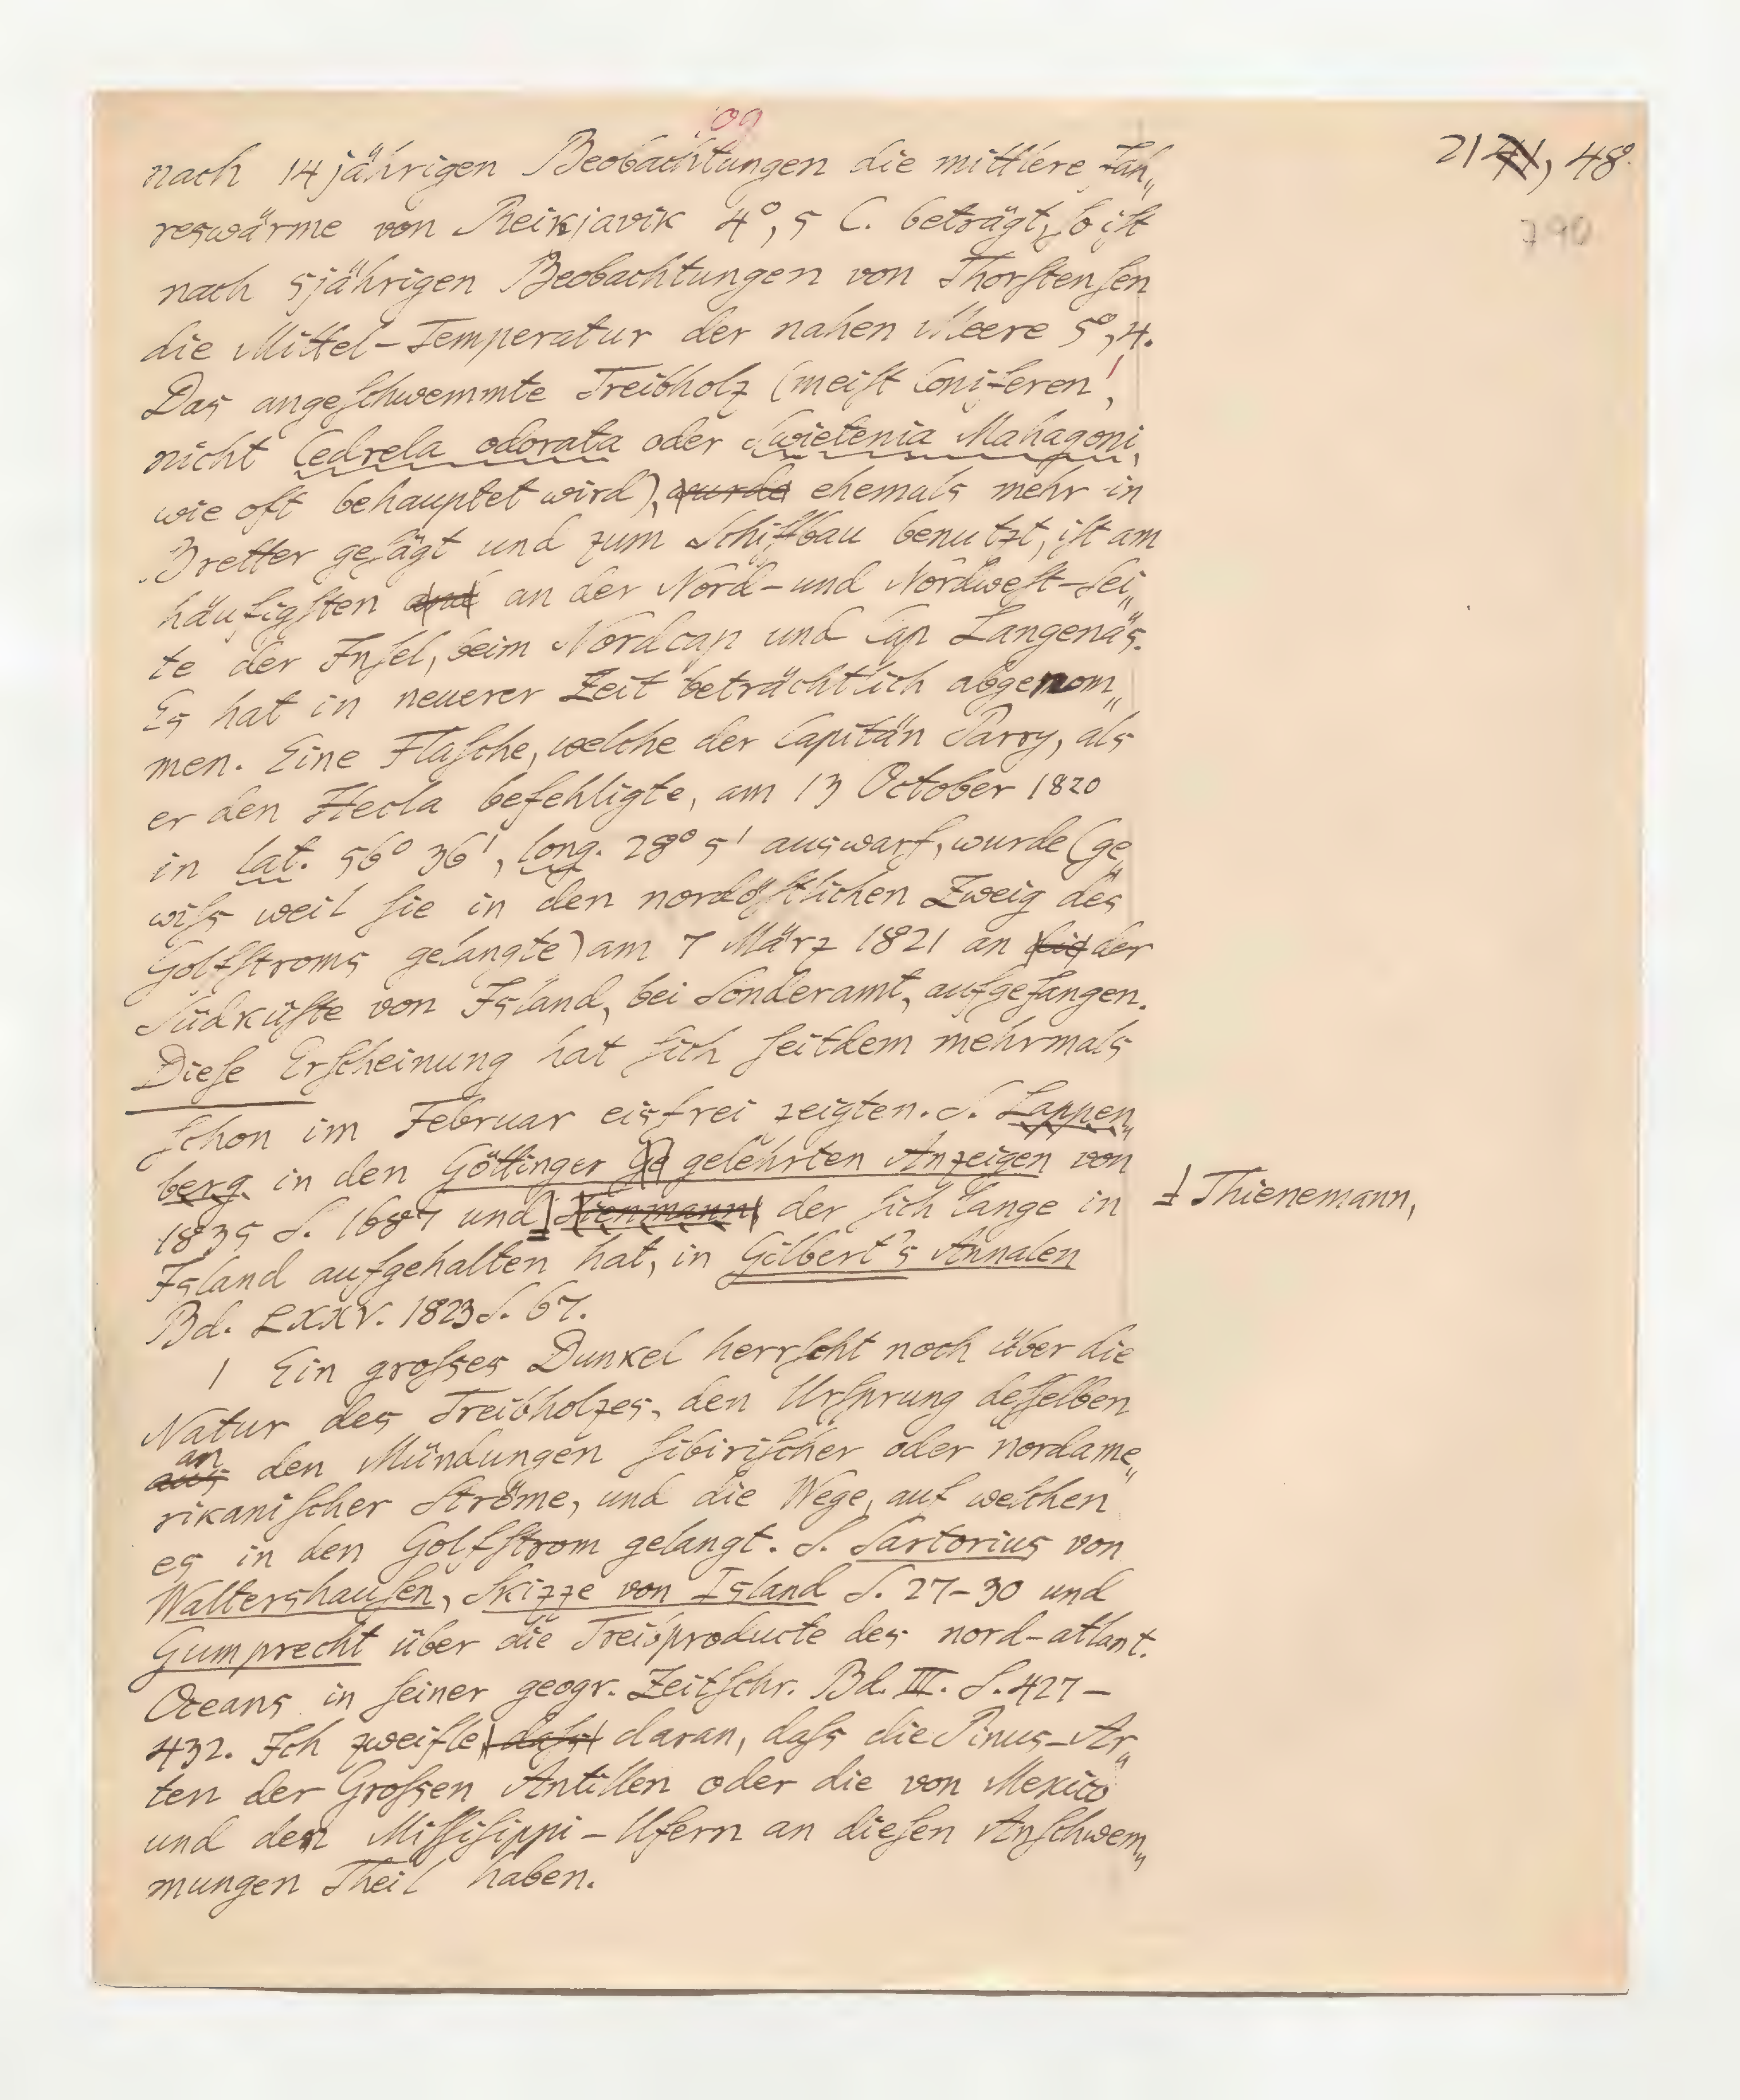 09
21 71, 48.
790
nach 14jährigen Beobachtungen die mittlere Jah„
reswärme von Reikjavik 4°,5 C. beträgt, so ist
nach 5jährigen Beobachtungen von Thorstensen
die Mittel-Temperatur der nahen Meere 5°,4.
Das angeschwemmte Treibholz (meist Coniferen!
nicht Cedrela odorata oder Swietenia Mahagoni,
wie oft behauptet wird), wurde ehemals mehr in
Bretter gesägt und zum Schiffbau benutzt, ist am
häufigsten und an der Nord- und Nordwest-Sei„
te der Insel, beim Nordcap und Cap Langenäs.
Es hat in neuerer Zeit beträchtlich abgenom„
men. Eine Flasche, welche der Capitän Parry, als
er den Hecla befehligte, am 13 October 1820
in lat. 56° 36', long. 28° 5' auswarf, wurde (ge„
wiss weil sie in den nordöstlichen Zweig des
Golfstroms gelangte) am 7 März 1821 an die der
Südküste von Island, bei Sonderamt, aufgefangen.
Diese Erscheinung hat sich seitdem mehrmals
schon im Februar eisfrei zeigten. S. Lappen„
berg in den Göttinger Ge gelehrten Anzeigen von
1835 S. 1687 und Tienmann der sich lange in
Thienemann,
Island aufgehalten hat, in Gilbert's Annalen
Bd. LXXV. 1823 S. 67.
1 Ein grosses Dunkel herrscht noch über die
Natur des Treibholzes, den Ursprung desselben
an
aus den Mündungen sibirischer oder nordame„
rikanischer Ströme, und die Wege, auf welchen
es in den Golfstrom gelangt. S. Sartorius von
Waltershausen, Skizze von Island S. 27-30 und
Gumprecht über die Treibproducte des nord-atlant.
Oceans in seiner geogr. Zeitschr. Bd. III. S. 427-
432. Ich zweifle dass daran, dass die Pinus-Ar„
ten der Grossen Antillen oder die von Mexico
und den Missisippi-Ufern an diesen Anschwem„
mungen Theil haben.